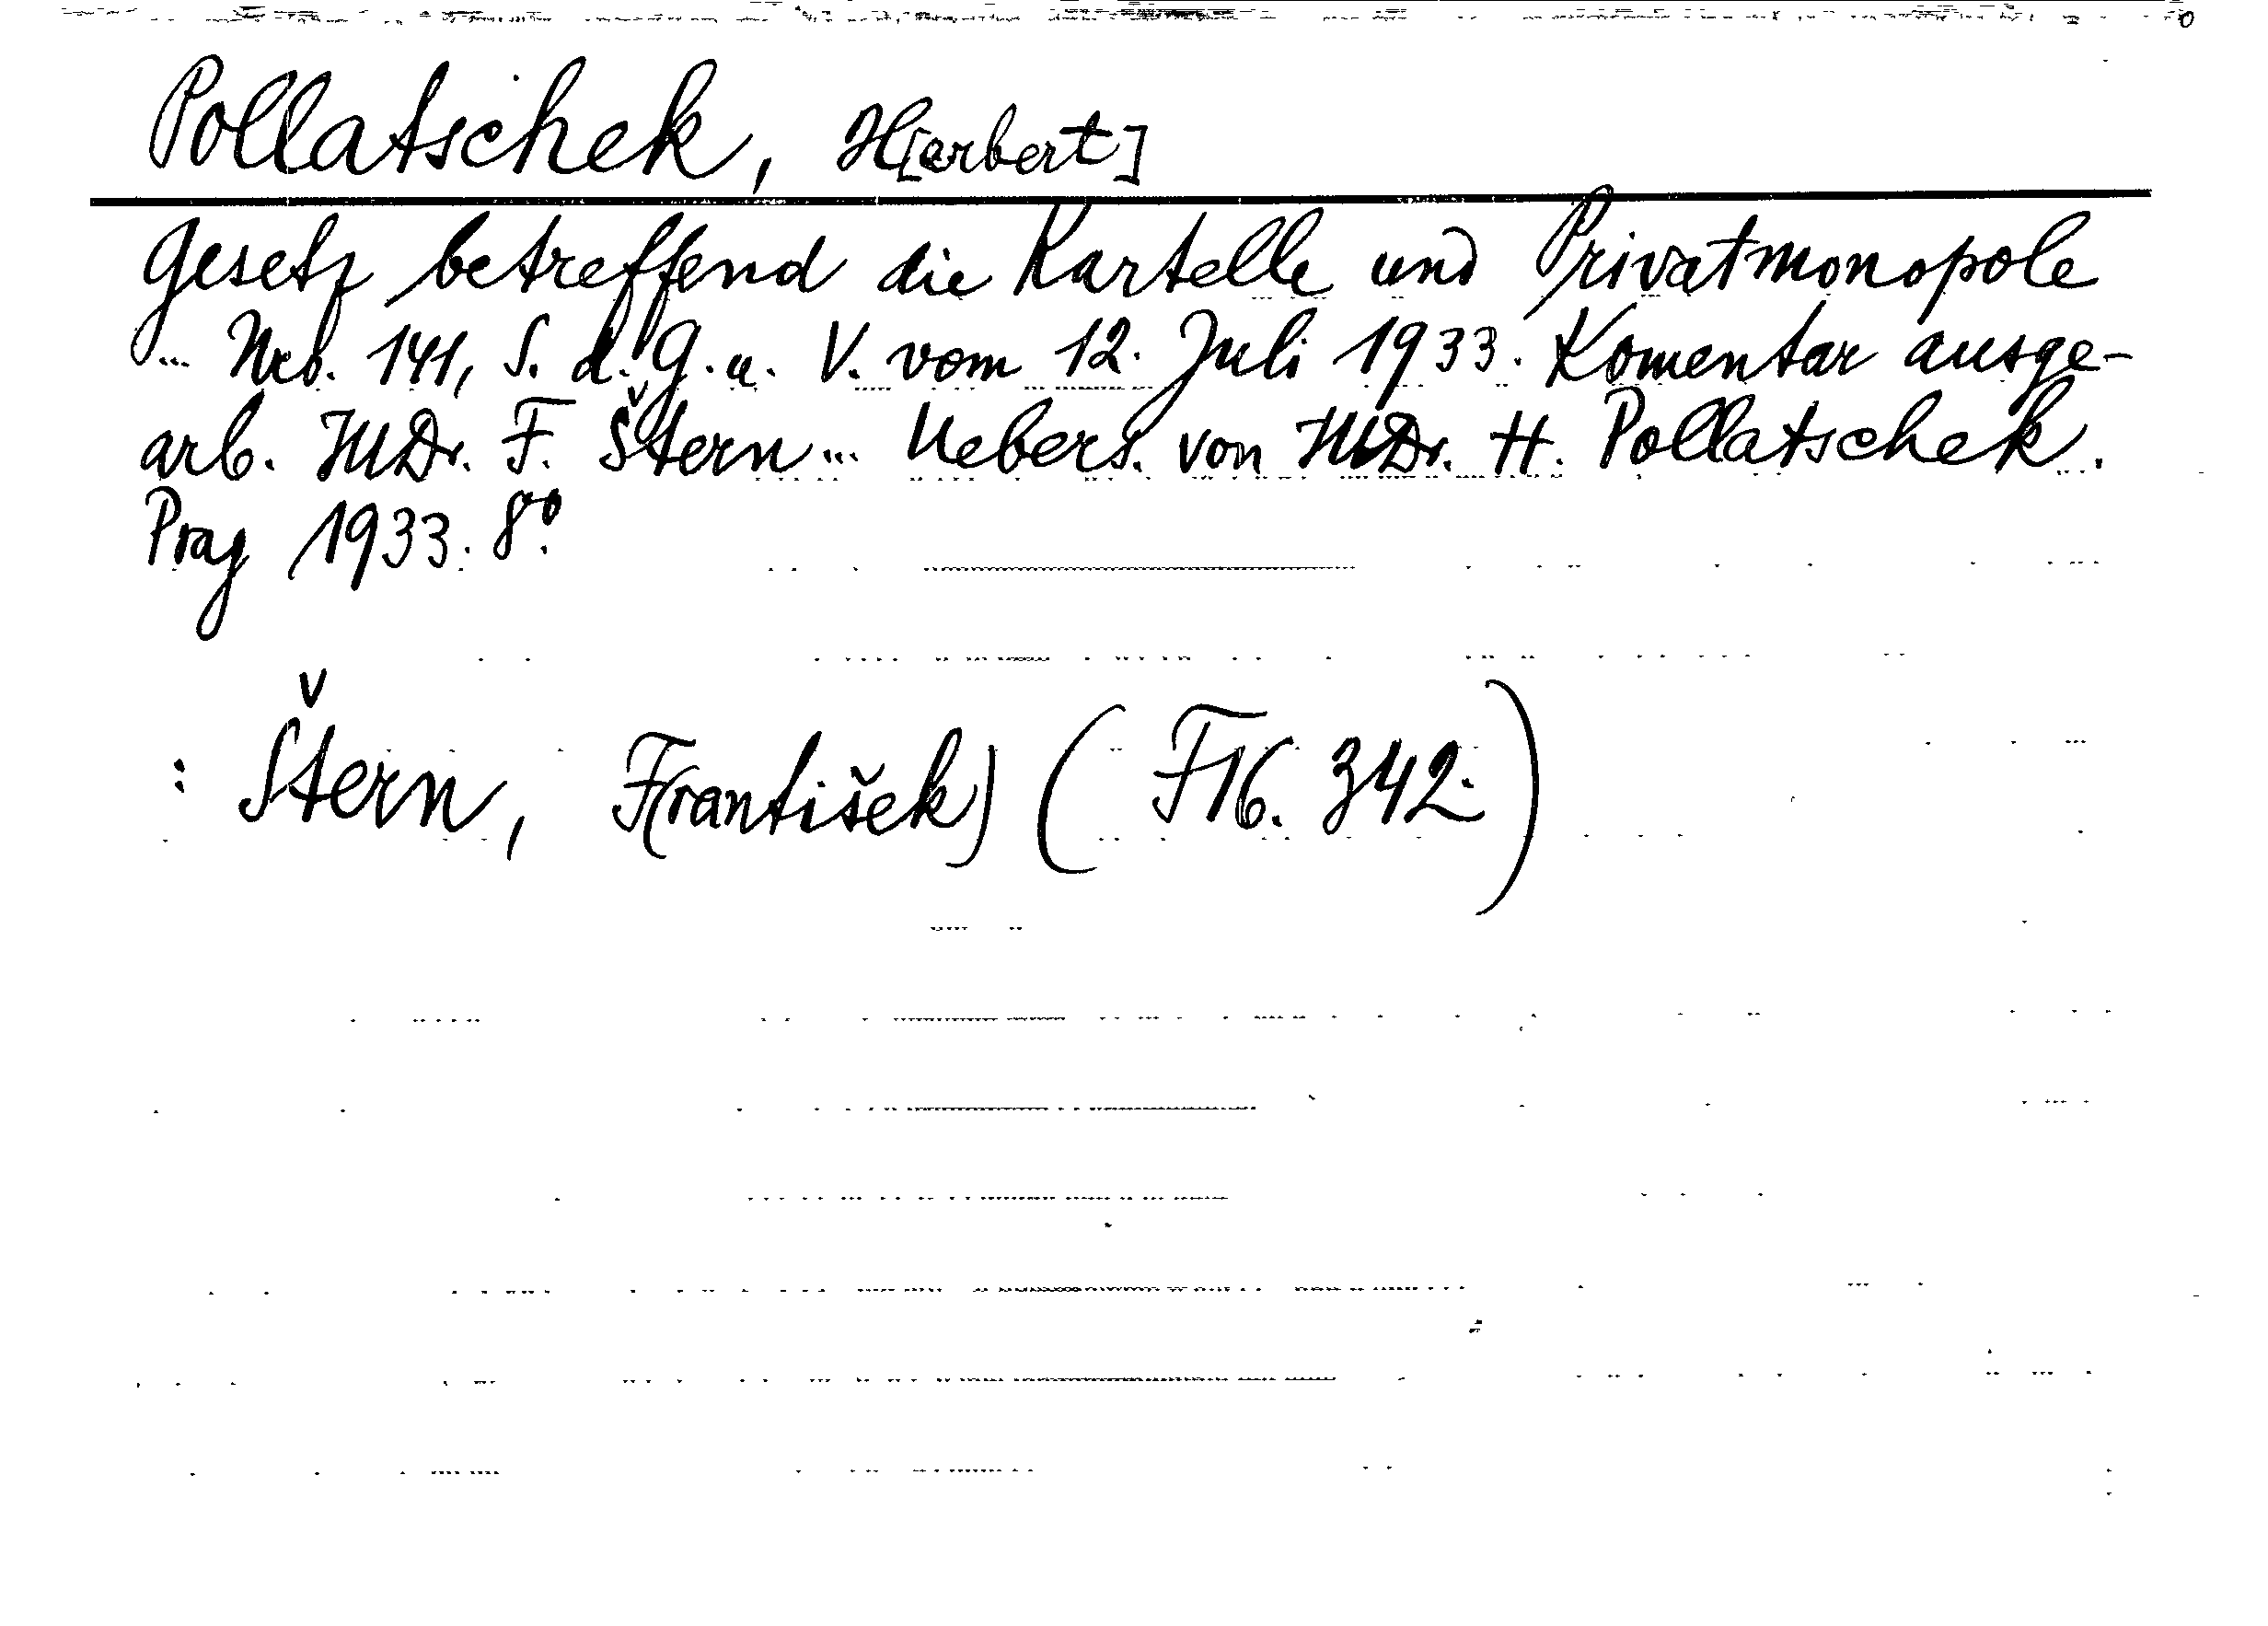 Pollatschek, H[erbert]
Gesetz betreffend die Kartelle und Privatmonopole
... Nro. 141, S. d. G. u. V. vom 12. Juli 1933. Komentar ausge-
arb. JUDr. F. Štern ... Uebers. von JUDr. H. Pollatschek.
Prag 1933. 8°.
: Štern, F(rantišek) (F 16. 342.)